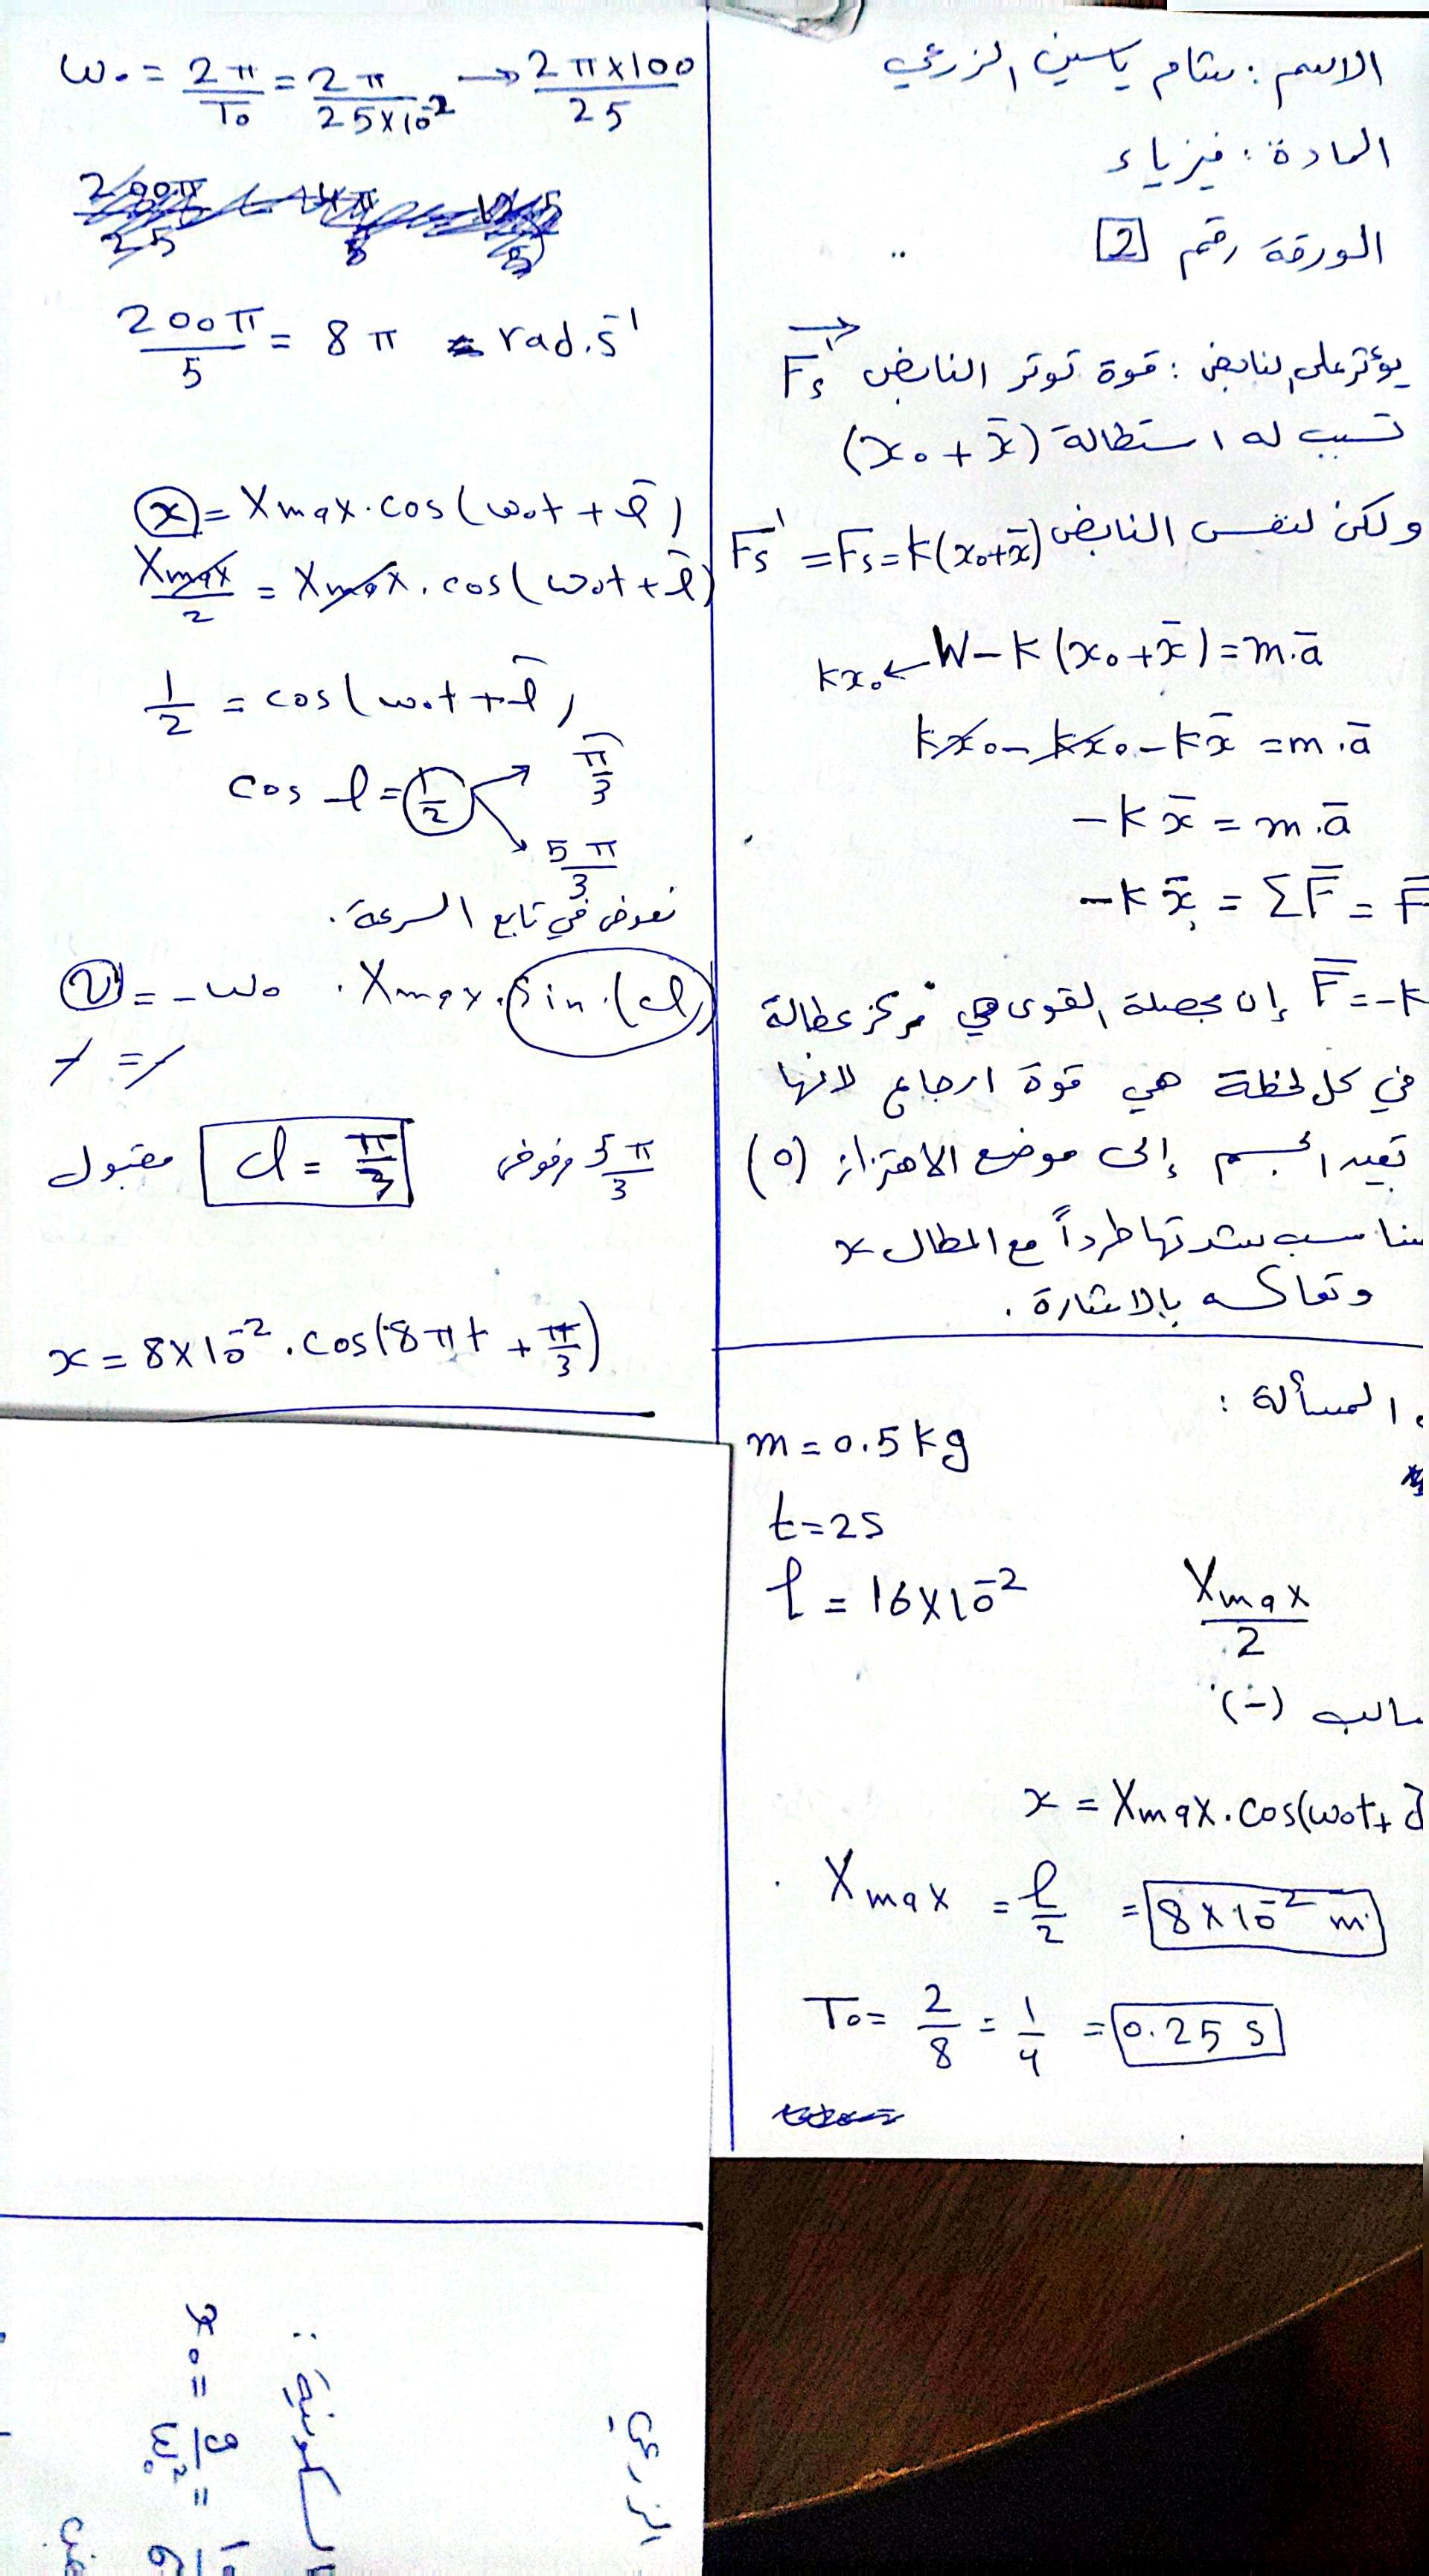 الاسم : شام ياسين الزرعي
المادة : فيزياء
الورقة رقم 2
يؤثر على النابض : قوة توتر النابض F's
تسبب له استطالة (x₀ + x̄)
ولكن لنفس النابض F's = Fs = k(x₀+x̄)
kx₀ ← W – k (x₀ + x̄) = m.ā
kx₀ – kx₀ – kx̄ = m.ā
– k x̄ = m.ā
– k x̄ = ΣF̄ = F̄
F̄ = –k إن محصلة القوى هي مركز عطالة
في كل لحظة هي قوة ارجاع لانها
تعيد الجسم إلى موضع الاهتزاز (o)
تناسب شدتها طرداً مع المطال x
وتعاكسه بالاشارة .
المسألة :
m = 0.5 kg
t = 2s
l = 16×10⁻² Xmax/2
سالب (–)
x = Xmax.cos(ω₀t+
Xmax = l/2 = 8×10⁻² m
T₀ = 2/8 = 1/4 = 0.25 s
ω₀ = 2π/T₀ = 2π/25×10⁻² → 2π×100/25
200π/5 = 8π rad.s⁻¹
x = Xmax.cos(ω₀t + φ̄)
Xmax/2 = Xmax.cos(ω₀t + φ̄)
1/2 = cos(ω₀t + φ̄)
cos φ = 1/2 π/3
5π/3
نعوض في تابع السرعة .
v = –ω₀ . Xmax.sin.(φ)
– = –
5π/3 مرفوض φ = π/3 مقبول
x = 8×10⁻².cos(8πt + π/3)
الزرعي
السكونية :
x₀ = g/ω₀² =